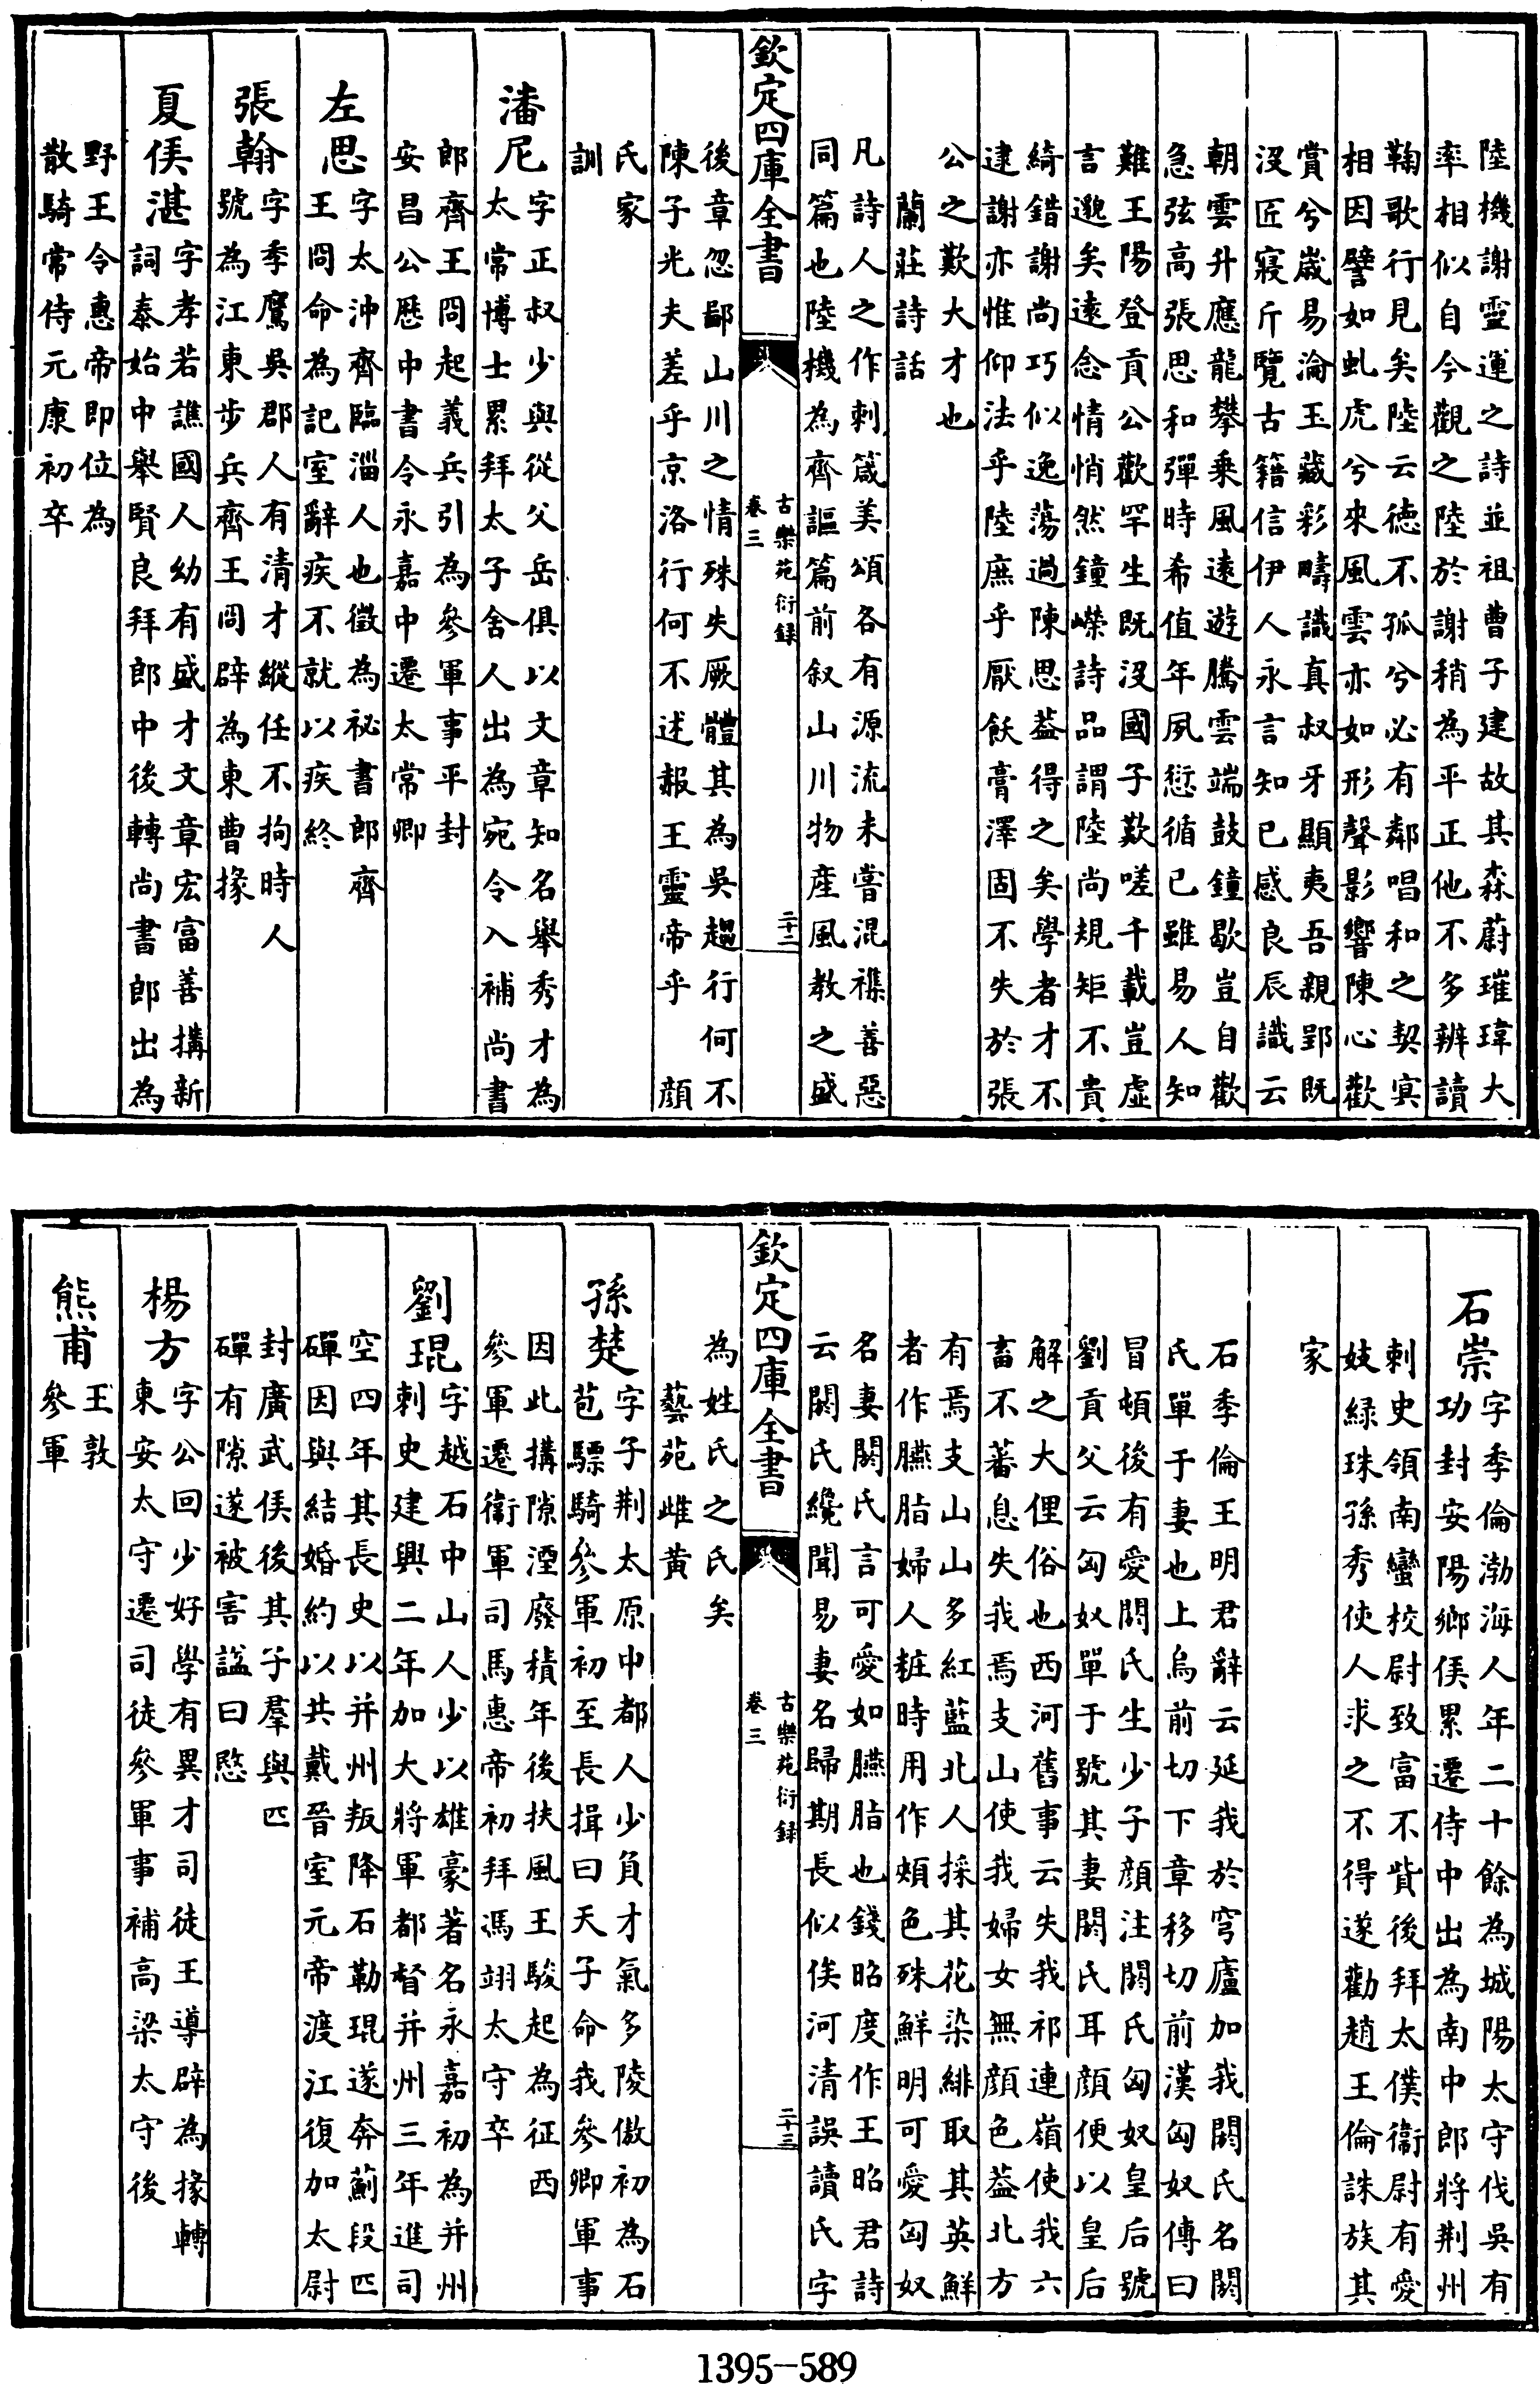 陸機謝靈運之詩並祖曹子建故其森蔚璀瑋大
率相似自今觀之陸於謝稍為平正他不多辨讀
鞠歌行見矣陸云德不孤兮必有鄰唱和之契寔
相因譬如虬虎兮來風雲亦如形聲影響陳心歡
賞兮嵗易淪玉藏彩疇識真叔牙顯夷吾親郢既
沒匠寢斤覽古籍信伊人永言知已感良辰識云
朝雲升應龍攀乗風逺遊騰雲端鼓鐘歇豈自歡
急弦高張思和彈時希值年夙愆循已雖易人知
難王陽登貢公歡罕生既沒國子歎嗟千載豈虚
言邈矣逺念情悄然鐘嶸詩品謂陸尚規矩不貴
綺錯謝尚巧似逸蕩過陳思葢得之矣學者才不
逮謝亦惟仰法乎陸庶乎厭飫膏澤固不失於張
公之歎大才也
蘭莊詩話
凡詩人之作刺箴美頌各有源流未嘗混襍善惡
同篇也陸機為齊謳篇前叙山川物産風教之盛
欽定四庫全書
古樂苑衍録
卷三
二十二
後章忽鄙山川之情殊失厥體其為吳趨行何不
陳子光夫差乎京洛行何不述赧王靈帝乎 顔
氏家
訓
潘尼
字正叔少與從父岳俱以文章知名舉秀才為
太常博士累拜太子舍人出為宛令入補尚書
郎齊王冏起義兵引為參軍事平封
安昌公歴中書令永嘉中遷太常卿
左思
字太沖齊臨淄人也徵為秘書郎齊
王冏命為記室辭疾不就以疾終
張翰
字季鷹吳郡人有清才縱任不拘時人
號為江東步兵齊王冏辟為東曹掾
夏侯湛
字孝若譙國人幼有盛才文章宏富善搆新
詞泰始中舉賢良拜郎中後轉尚書郎出為
野王令惠帝即位為
散騎常侍元康初卒
石崇
字季倫渤海人年二十餘為城陽太守伐吳有
功封安陽鄉侯累遷侍中出為南中郎將荆州
刺史領南蠻校尉致富不貲後拜太僕衞尉有愛
妓緑珠孫秀使人求之不得遂勸趙王倫誅族其
家
石季倫王明君辭云延我於穹廬加我閼氏名閼
氏單于妻也上烏前切下章移切前漢匈奴傳曰
冒頓後有愛閼氏生少子顔注閼氏匈奴皇后號
劉貢父云匈奴單于號其妻閼氏耳顔便以皇后
解之大俚俗也西河舊事云失我祁連嶺使我六
畜不蕃息失我焉支山使我婦女無顔色葢北方
有焉支山山多紅藍北人採其花染緋取其英鮮
者作臙脂婦人粧時用作頰色殊鮮明可愛匈奴
名妻閼氏言可愛如臙脂也錢昭度作王昭君詩
云閼氏纔聞易妻名歸期長似俟河清誤讀氏字
欽定四庫全書
古樂苑衍録
卷三
二十三
為姓氏之氏矣
藝苑雌黄
孫楚
字子荆太原中都人少負才氣多陵傲初為石
苞驃騎參軍初至長揖曰天子命我參卿軍事
因此搆隙湮廢積年後扶風王駿起為征西
參軍遷衞軍司馬惠帝初拜馮翊太守卒
劉琨
字越石中山人少以雄豪著名永嘉初為并州
刺史建興二年加大將軍都督并州三年進司
空四年其長史以并州叛降石勒琨遂奔薊段匹
磾因與結婚約以共戴晉室元帝渡江復加太尉
封廣武侯後其子羣與匹
磾有隙遂被害諡曰愍
楊方
字公回少好學有異才司徒王導辟為掾轉
東安太守遷司徒參軍事補高梁太守後
熊甫
王敦
參軍
1395—589